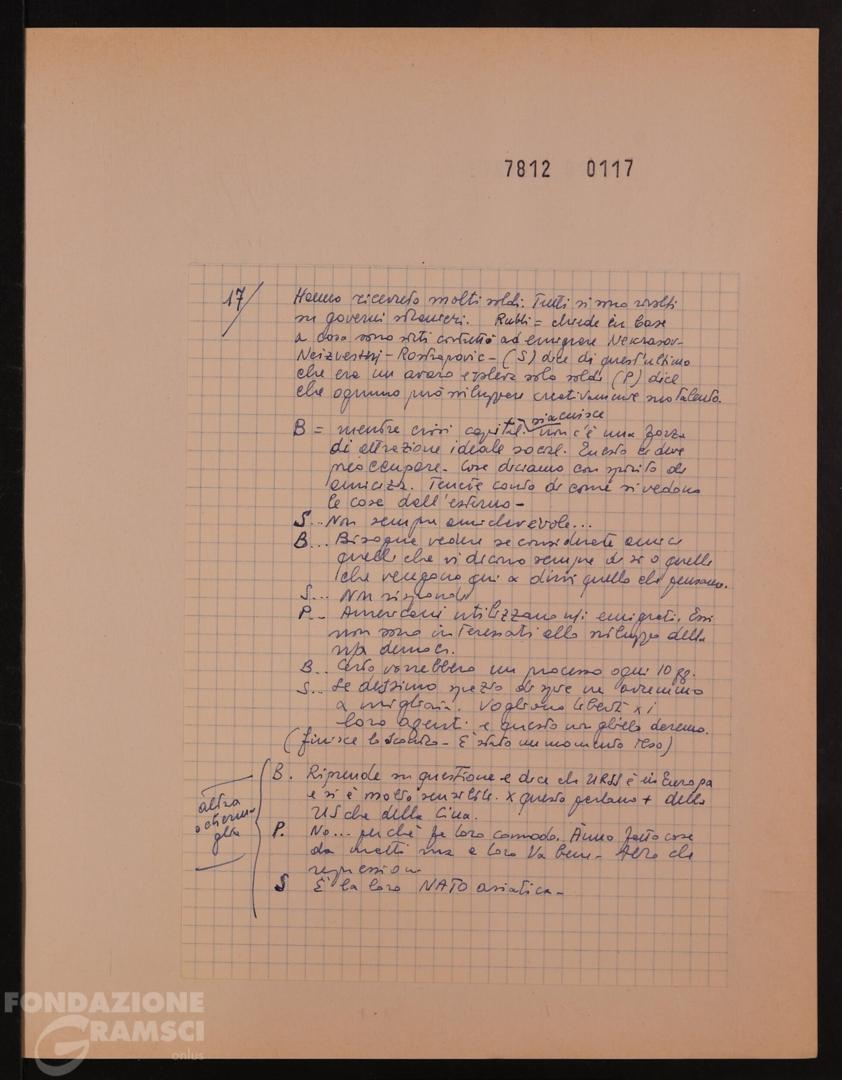 7812 0117
17/
Hanno ricevuto molti soldi. Tutti si sono rivolti
su governi stranieri. Rubbi = chiede in base
a cosa sono stati costretti ad emigrare Nekrasov-
Neizvestnj - Rostropovic - (S) dice di quest'ultimo
che era un avaro e voleva solo soldi (P) dice
che ognuno può sviluppare creativamente suo talento.
B = mentre crisi capital. si acuisce non c'è una forza
di attrazione ideale social. Questo ci deve
preoccupare. Cose diciamo con spirito di
amicizia. Tenete conto di come si vedono
le cose dall'esterno -
S... Non sempre amichevole...
B... Bisogna vedere se considerate amici
quelli che vi dicono sempre di sì o quelli
che vengono qui a dirvi quello che pensano.
S... Non risponde
P... Americani utilizzano ns/ emigrati. Essi
non sono interessati allo sviluppo della
ns/a democr.
B.. Certo vorrebbero un processo ogni 10 gg.
S... Se dessimo spazio di spie ne avremmo
a migliaia. Vogliono libertà x i
loro agenti e questo non glielo daremo.
(finisce lo scontro - È stato un momento teso)
altra
scherma-
glia
B. Riprende su questione e dice che URSS è in Europa
e si è molto sensibili. x questo parlano + della
US che della Cina.
P. No... perché fa loro comodo. Ànno fatto cose
da matti ma a loro va bene - Altro che
repressione
S È la loro NATO asiatica -
FONDAZIONE
GRAMSCI
onlus